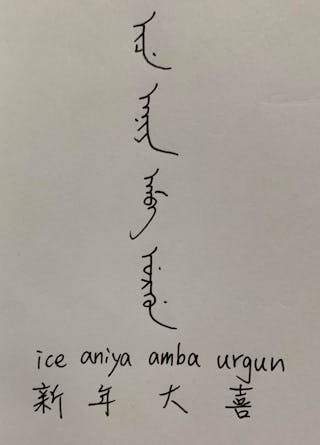 ᡳᠴᡝ ᠠᠨᡳᠶᠠ ᠠᠮᠪᠠ ᡠᡵᡤᡠᠨ
ice aniya amba urgun
新年大喜